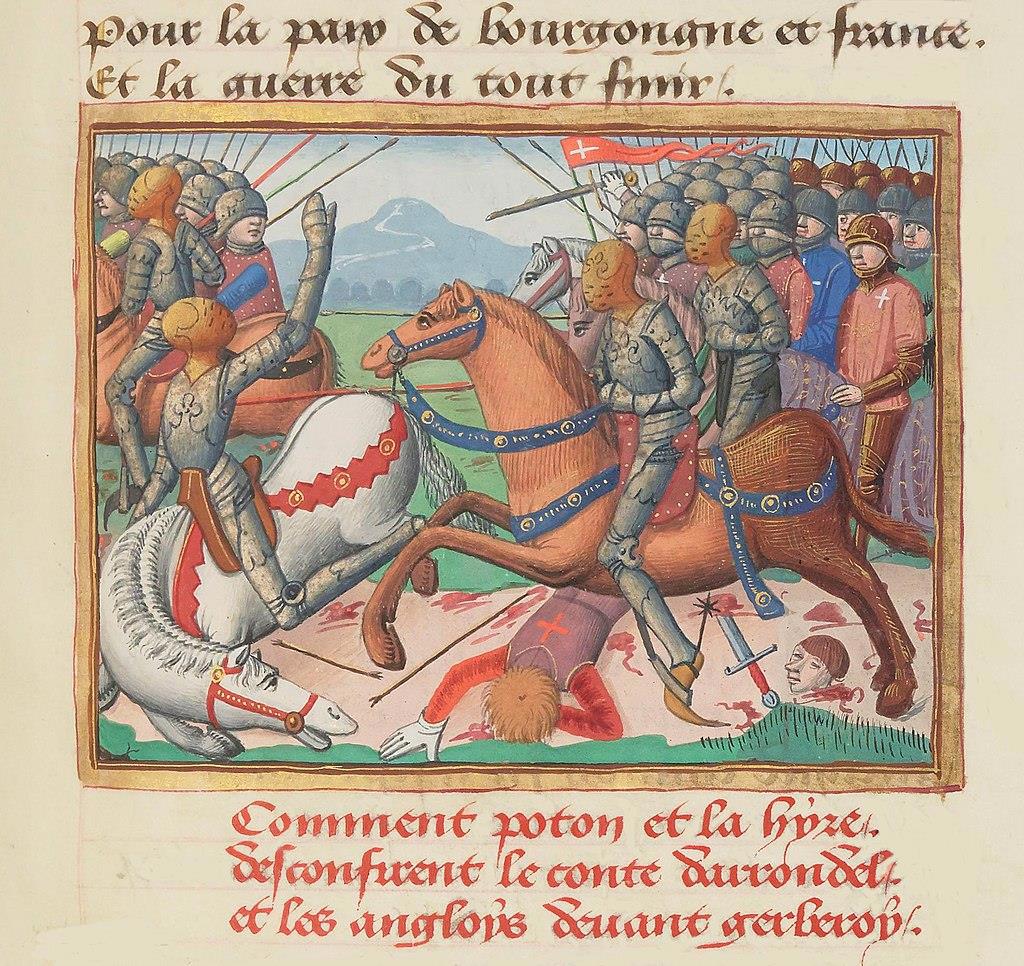 pour la paix de bourgongne et france.
Et la guerre du tout finir /.
Comment poton et la hÿre /.
desconfirent le conte daurondel /.
et les angloÿs deuant gerberoÿ /.